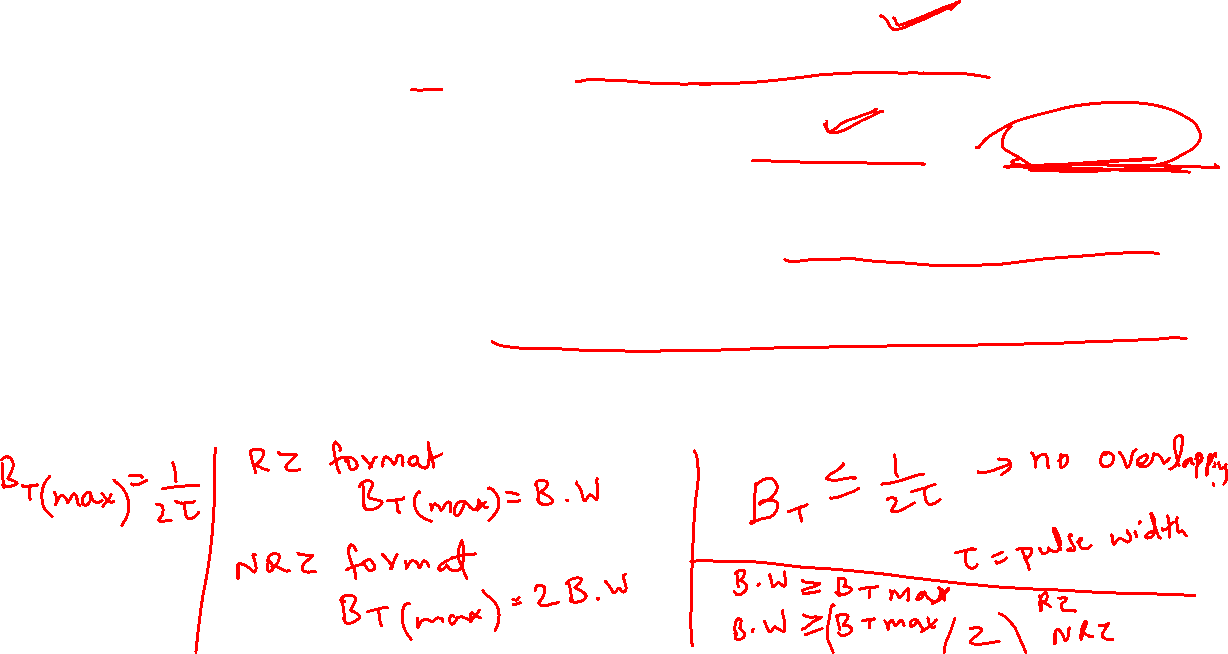 B_T(max) = 1/2τ
RZ format
B_T(max) = B.W
NRZ format
B_T(max) = 2B.W
B_T ≤ 1/2τ → no overlapping
τ = pulse width
B.W ≥ B_T max RZ
B.W ≥ (B_T max / 2) NRZ